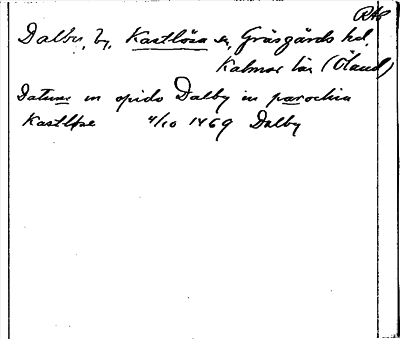 RAP
Dalby, by, Kastlösa sn, Gräsgårds hd,
Kalmar län (Öland)
Datum in opido Dalby in parochia
Kastløse 4/10 1469 Dalby